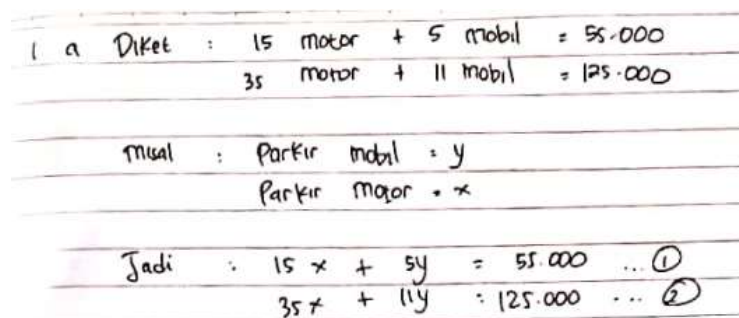 1 a Diket : 15 motor + 5 mobil = 55.000
35 motor + 11 mobil = 125.000
misal : Parkir mobil = y
Parkir motor = x
Jadi : 15 x + 5y = 55.000 ... ①
35x + 11y = 125.000 ... ②